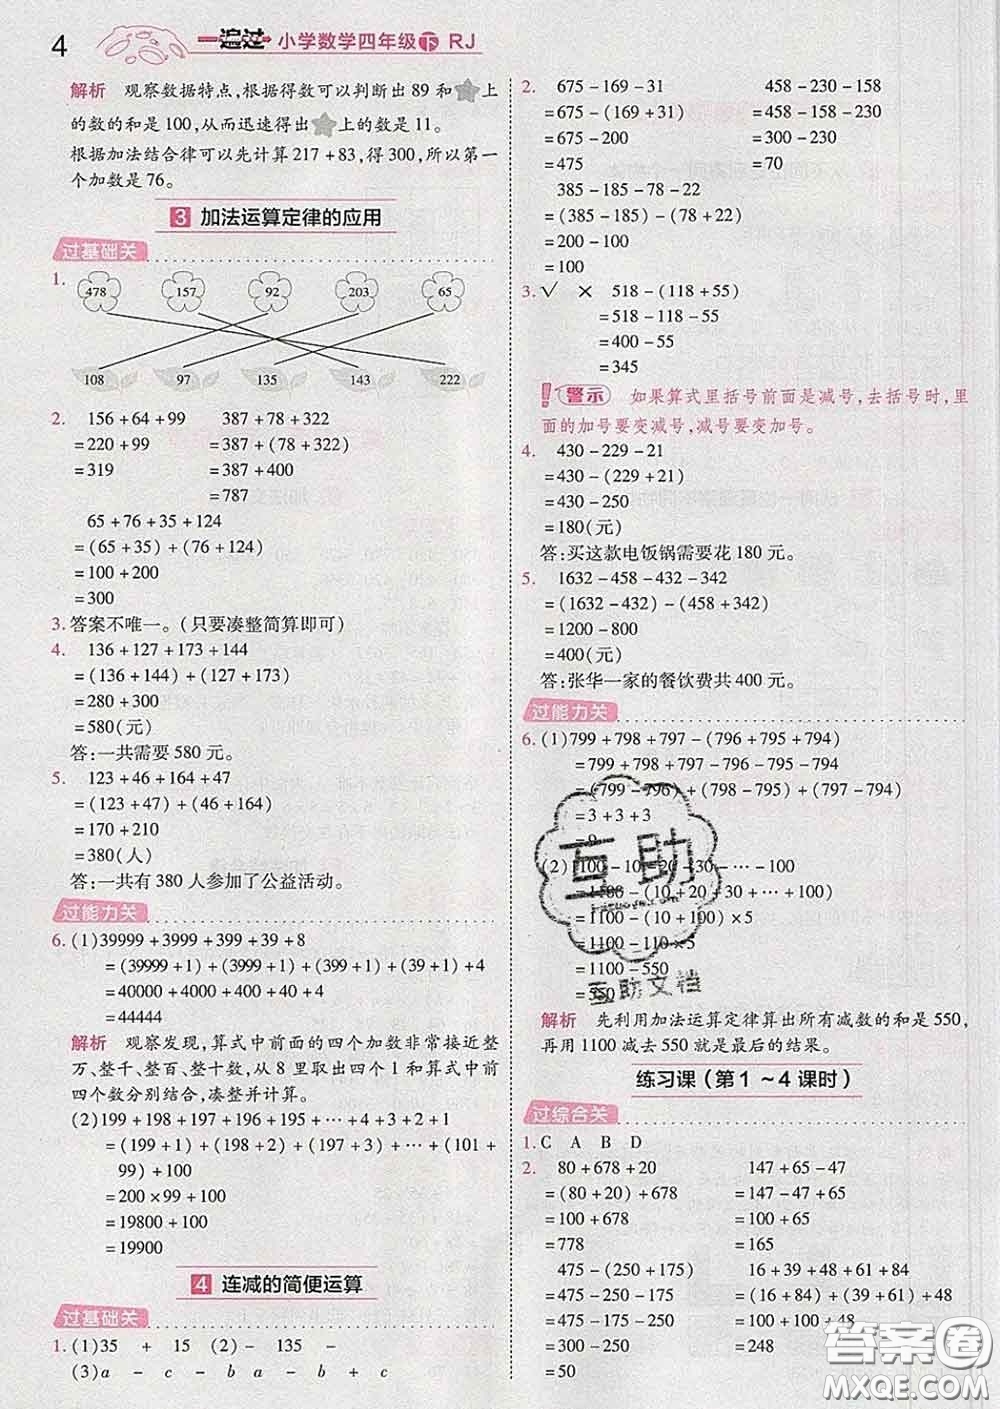 4
一遍过 小学数学四年级 下 RJ
解析 观察数据特点,根据得数可以判断出 89 和 上
的数的和是 100,从而迅速得出 上的数是 11。
根据加法结合律可以先计算 217+83,得 300,所以第一
个加数是 76。
3 加法运算定律的应用
过基础关
1.
478 157 92 203 65
108 97 135 143 222
2. 156+64+99 387+78+322
=220+99 =387+(78+322)
=319 =387+400
=787
65+76+35+124
=(65+35)+(76+124)
=100+200
=300
3. 答案不唯一。(只要凑整简算即可)
4. 136+127+173+144
=(136+144)+(127+173)
=280+300
=580(元)
答:一共需要 580 元。
5. 123+46+164+47
=(123+47)+(46+164)
=170+210
=380(人)
答:一共有 380 人参加了公益活动。
过能力关
6. (1)39999+3999+399+39+8
=(39999+1)+(3999+1)+(399+1)+(39+1)+4
=40000+4000+400+40+4
=44444
解析 观察发现,算式中前面的四个加数非常接近整
万、整千、整百、整十数,从 8 里拿出四个 1 和算式中前
四个数分别结合,凑整并计算。
(2)199+198+197+196+195+…+4+3+2+1
=(199+1)+(198+2)+(197+3)+…+(101
+99)+100
=200×99+100
=19800+100
=19900
4 连减的简便运算
过基础关
1. (1)35 + 15 (2)- 135 -
(3)a - c - b a - b - c
2. 675-169-31 458-230-158
=675-(169+31) =458-158-230
=675-200 =300-230
=475 =70
385-185-78-22
=(385-185)-(78+22)
=200-100
=100
3. √ × 518-(118+55)
=518-118-55
=400-55
=345
警示 如果算式里括号前面是减号,去括号时,里
面的加号要变减号,减号要变加号。
4. 430-229-21
=430-(229+21)
=430-250
=180(元)
答:买这款电饭锅需要花 180 元。
5. 1632-458-432-342
=(1632-432)-(458+342)
=1200-800
=400(元)
答:张华一家的餐饮费共 400 元。
过能力关
6. (1)799+798+797-(796+795+794)
=799+798+797-796-795-794
=(799-796)+(798-795)+(797-794)
=3+3+3
=9
(2)1100-10-20-30-…-100
=1100-(10+20+30+…+100)
=1100-(10+100)×5
=1100-110×5
=1100-550
=550
解析 先利用加法运算定律算出所有减数的和是 550,
再用 1100 减去 550 就是最后的结果。
练习课(第 1 ~4 课时)
过综合关
1. C A B D
2. 80+678+20 147+65-47
=(80+20)+678 =147-47+65
=100+678 =100+65
=778 =165
475-(250+175) 16+39+48+61+84
=475-250-175 =(16+84)+(39+61)+48
=475-175-250 =100+100+48
=300-250 =248
=50
互助
互助文档
答案圈
MXQE.COM